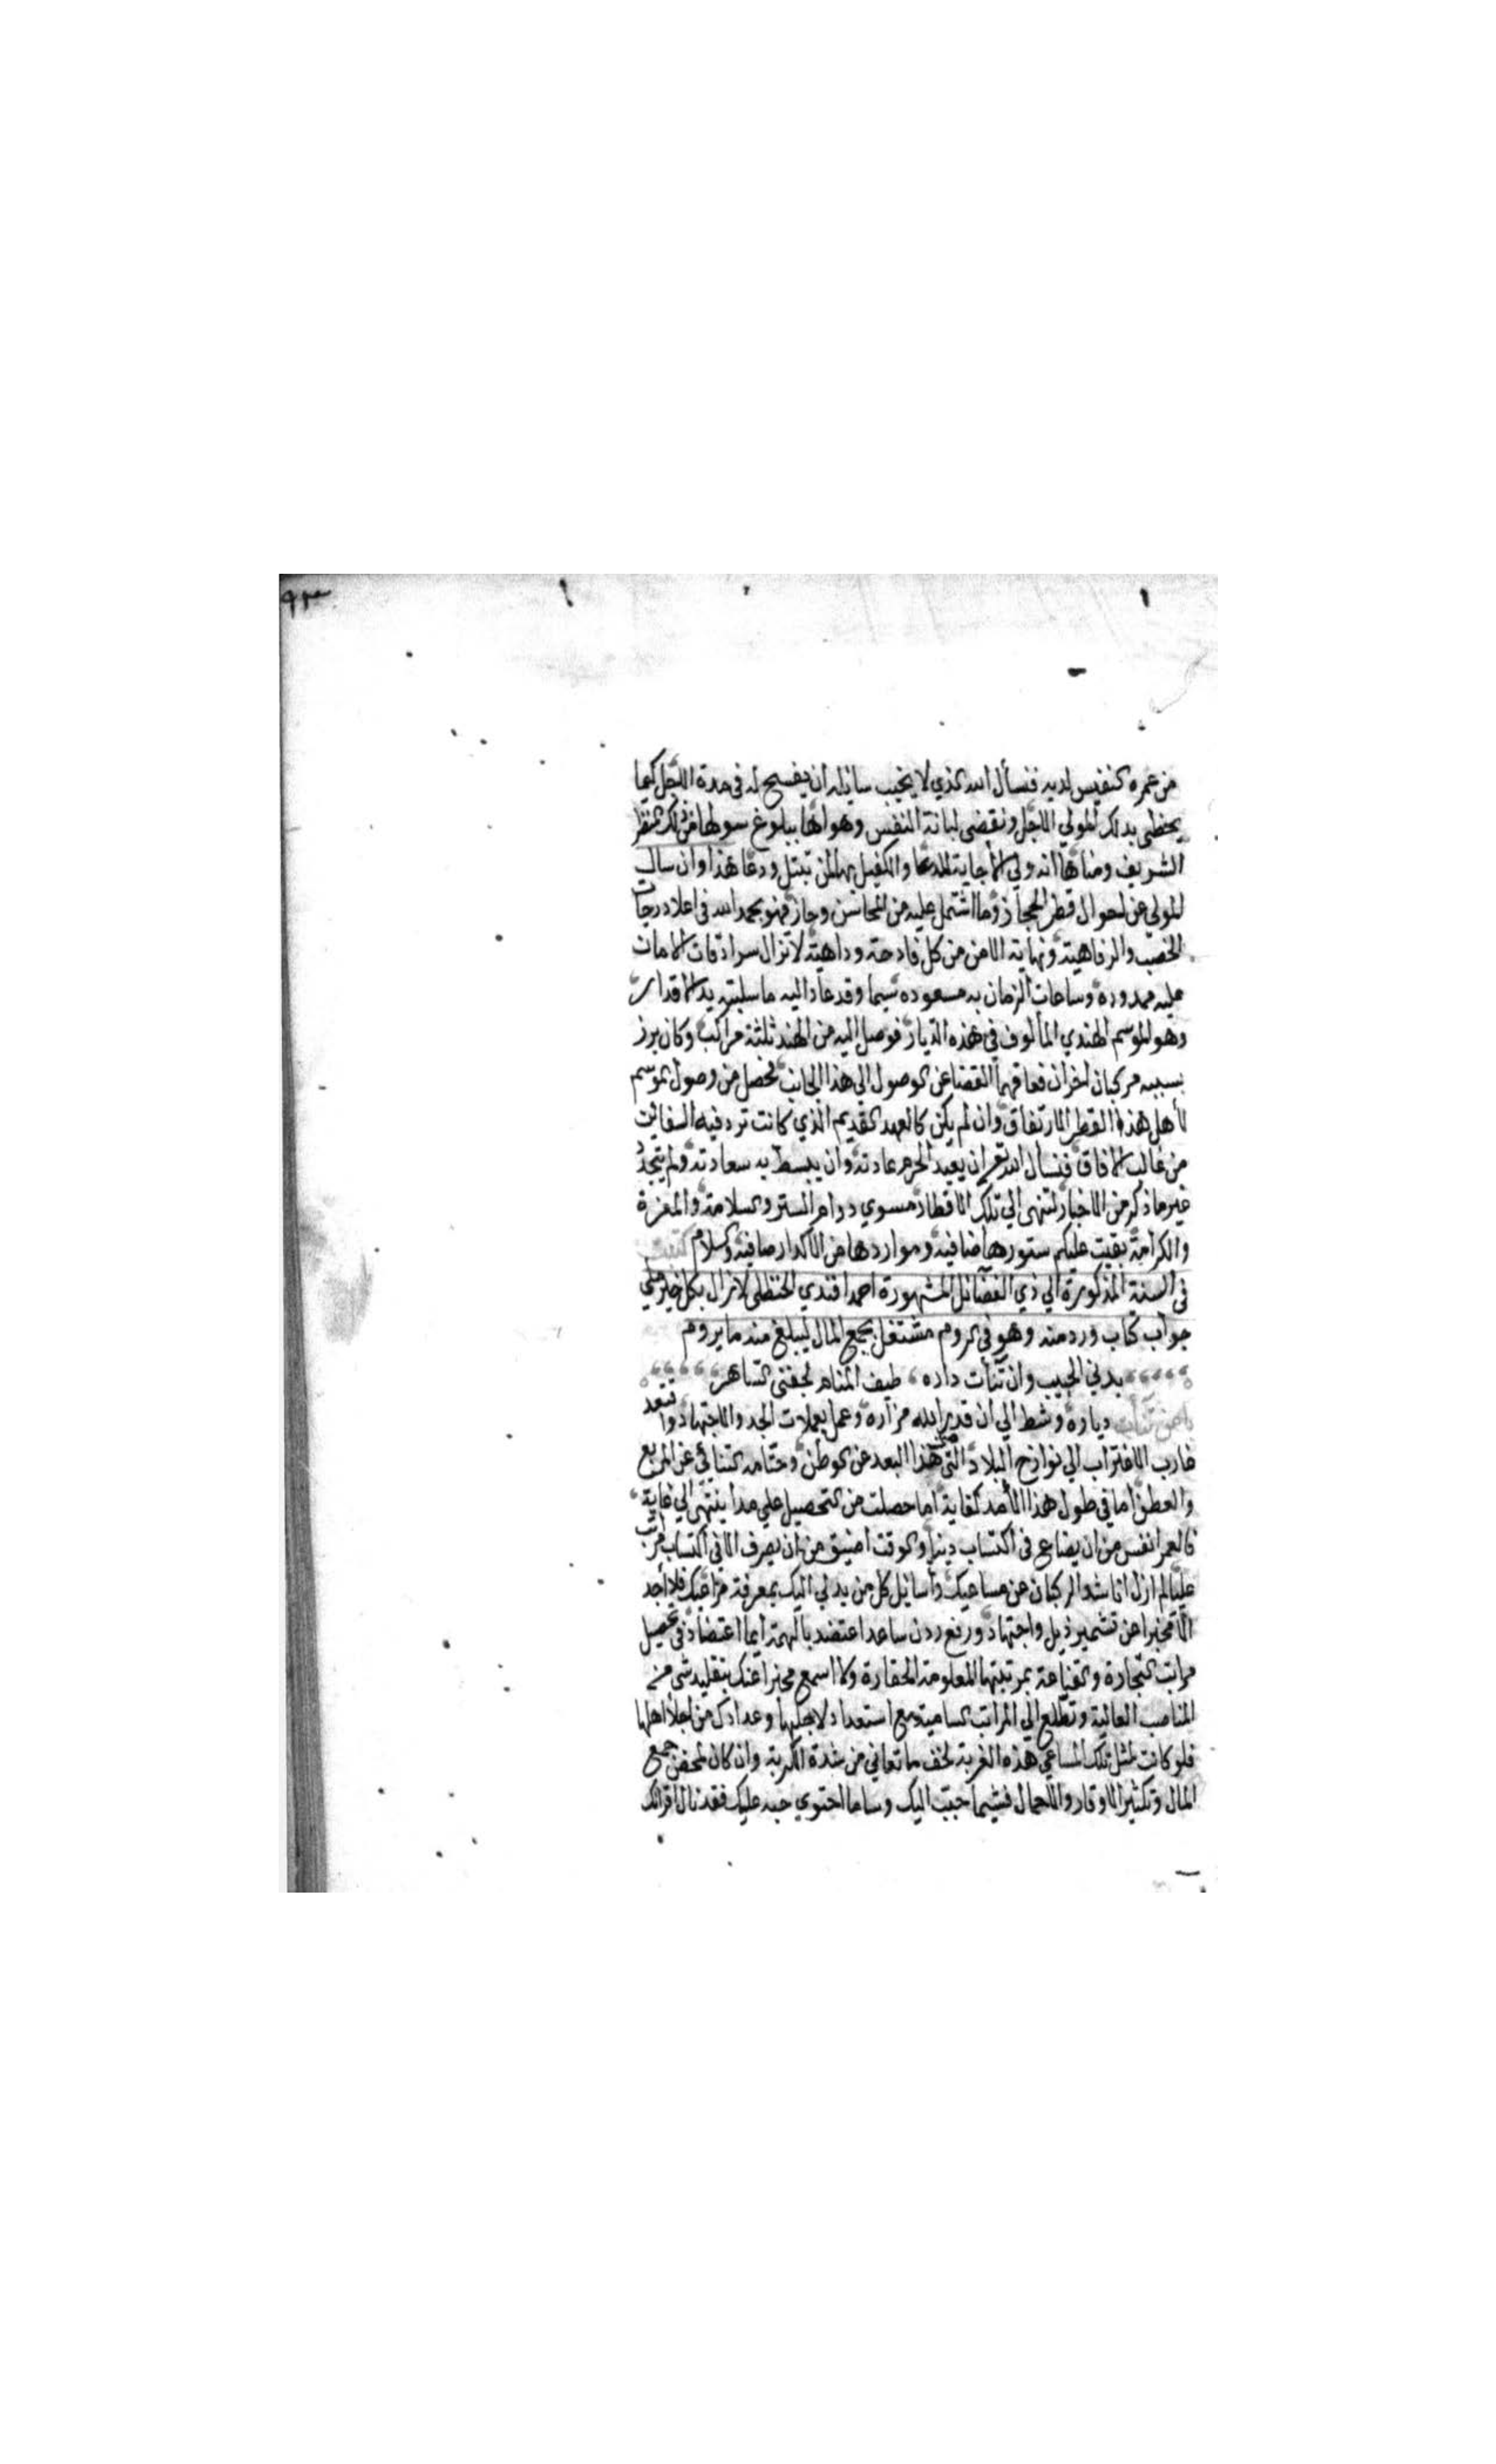 ٩٣
من عمره كنفيس لديه فنسأل الله الذي لا يخيب سايله ان يفسح له في مدة الاجل كيما
يحظى بذلك المولي الاجل ونقضى لبانة النفس وهواها ببلوغ سولها من ذلك المنظر
الشريف ومناها انه ولي الاجابة للدعا والكفيل بها لمن تبتل ودعا هذا وان سال
المولي عن احوال قطر الحجاز وما اشتمل عليه من المحاسن وحاز فهو بحمد الله في اعلا درجات
الخصب والرفاهية ونهاية الامن من كل فادحة وداهية لا تزال سرادقات الامان
عليه ممدودة وساعات الزمان به مسعوده سيما وقد عاد اليه ما سلبته يد الاقدار
وهو الموسم الهندي المألوف في هذه الديار فوصل اليه من الهند ثلثة مراكب وكان برز
بسببه مركبان اخران فعاقهما القضا عن الوصول الى هذا الجانب فحصل من وصول الموسم
لأهل هذا القطر الارتفاق وان لم يكن كالعهد القديم الذي كانت ترد فيه السفاين
من غالب الافاق فنسال الله تع ان يعيد الحرم عادته وان يبسط به سعادته ولم يتجدد
غير ما ذكر من الاخبار لتنهى الي تلك الاقطار سوي دوام الستر والسلامة والمعزة
والكرامة بقيت عليكم ستورها ضافيه ومواردها من الاكدار صافية والسلام كتبت
في السنة المذكورة الي ذي الفضائل المشهورة احمد افندي الحنظلي لا زال بكل خير ملي
جواب كتاب ورد منه وهو في الروم مشتغل بجمع المال ليبلغ منه ما يروم
يدني الحبيب وان تنأت داره طيف المنام لجفني الساهر
يا من تنأت دياره وشط الي ان قدر الله مزاره وعمل يعملات الجد والاجتهاد واقتعد
غارب الاغتراب الي نوازح البلاد التي متى هذا البعد عن الوطن وحتامه التنائي عن المربع
والعطن اما في طول هذا الأمد كفاية اما حصلت من التحصيل علي مدا ينتهي الي غاية
فالعمر انفس من ان يضاع في اكتساب دنيا والوقت اضيق من ان يصرف الا في اكتساب مراتب
عليا لم ازل اناشد الركبان عن مساعيك وأسايل كل من يدلي اليك بمعرفة مراعيك فلا أجد
الا مخبرا عن تشمير ذيل واجتهاد ورفع ردن ساعد اعتضد بالهمة ايما اعتضاد في تحصيل
مراتب التجارة والقناعة بمرتبتها المعلومة الحقارة ولا اسمع مخبرا عنك بتقليد شى من
المناصب العالية وتطلع الي المراتب السامية مع استعدادك لاجلها وعدادك من اجلا اهلها
فلو كانت لمثل تلك المساعي هذه الغربة لخف ما تعاني من شدة الكربة وان كان لمحض جمع
المال وتكثير الاوقار والاحمال فشيما حببت اليك وساما احتوي حبه عليك فقد نال اقرانك